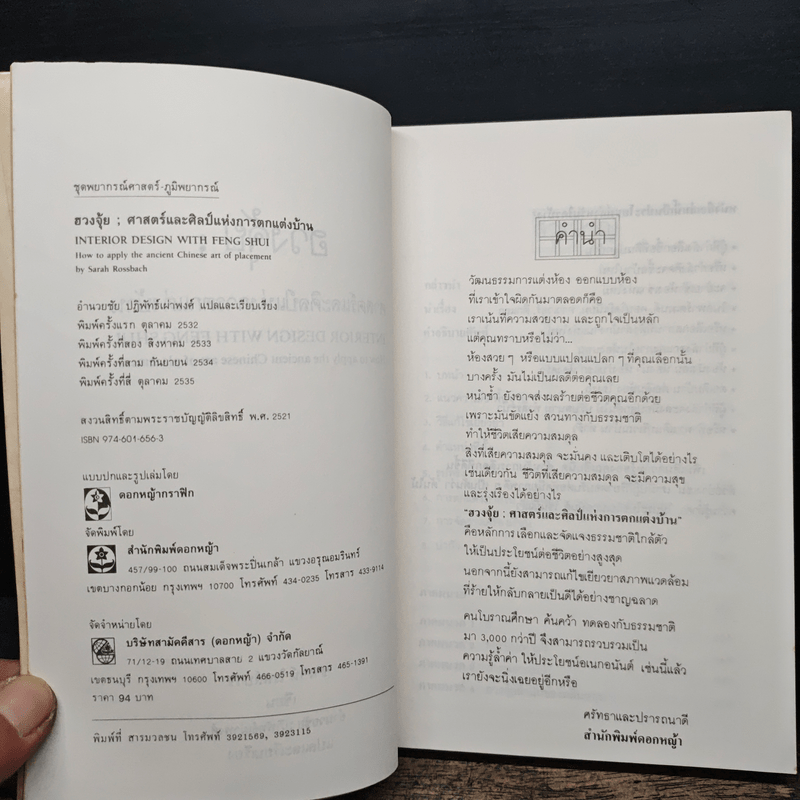 ชุดพยากรณ์ศาสตร์-ภูมิพยากรณ์
ฮวงจุ้ย ; ศาสตร์และศิลป์แห่งการตกแต่งบ้าน
INTERIOR DESIGN WITH FENG SHUI
How to apply the ancient Chinese art of placement
by Sarah Rossbach
อำนวยชัย ปฏิพัทธ์เผ่าพงศ์ แปลและเรียบเรียง
พิมพ์ครั้งแรก ตุลาคม 2532
พิมพ์ครั้งที่สอง สิงหาคม 2533
พิมพ์ครั้งที่สาม กันยายน 2534
พิมพ์ครั้งที่สี่ ตุลาคม 2535
สงวนสิทธิ์ตามพระราชบัญญัติลิขสิทธิ์ พ.ศ. 2521
ISBN 974-601-656-3
แบบปกและรูปเล่มโดย
ดอกหญ้ากราฟิก
จัดพิมพ์โดย
สำนักพิมพ์ดอกหญ้า
457/99-100 ถนนสมเด็จพระปิ่นเกล้า แขวงอรุณอมรินทร์
เขตบางกอกน้อย กรุงเทพฯ 10700 โทรศัพท์ 434-0235 โทรสาร 433-9114
จัดจำหน่ายโดย
บริษัทสามัคคีสาร (ดอกหญ้า) จำกัด
71/12-19 ถนนเทศบาลสาย 2 แขวงวัดกัลยาณ์
เขตธนบุรี กรุงเทพฯ 10600 โทรศัพท์ 466-0519 โทรสาร 465-1391
ราคา 94 บาท
พิมพ์ที่ สารมวลชน โทรศัพท์ 3921569, 3923115
คำนำ
วัฒนธรรมการแต่งห้อง ออกแบบห้อง
ที่เราเข้าใจผิดกันมาตลอดก็คือ
เราเน้นที่ความสวยงาม และถูกใจเป็นหลัก
แต่คุณทราบหรือไม่ว่า...
ห้องสวย ๆ หรือแบบแปลนแปลก ๆ ที่คุณเลือกนั้น
บางครั้ง มันไม่เป็นผลดีต่อคุณเลย
หนำซ้ำ ยังอาจส่งผลร้ายต่อชีวิตคุณอีกด้วย
เพราะมันขัดแย้ง สวนทางกับธรรมชาติ
ทำให้ชีวิตเสียความสมดุล
สิ่งที่เสียความสมดุล จะมั่นคง และเติบโตได้อย่างไร
เช่นเดียวกัน ชีวิตที่เสียความสมดุล จะมีความสุข
และรุ่งเรืองได้อย่างไร
"ฮวงจุ้ย ; ศาสตร์และศิลป์แห่งการตกแต่งบ้าน"
คือหลักการเลือกและจัดแจงธรรมชาติใกล้ตัว
ให้เป็นประโยชน์ต่อชีวิตอย่างสูงสุด
นอกจากนี้ยังสามารถแก้ไขเยียวยาสภาพแวดล้อม
ที่ร้ายให้กลับกลายเป็นดีได้อย่างชาญฉลาด
คนโบราณศึกษา ค้นคว้า ทดลองกับธรรมชาติ
มา 3,000 กว่าปี จึงสามารถรวบรวมเป็น
ความรู้ล้ำค่า ให้ประโยชน์อเนกอนันต์ เช่นนี้แล้ว
เรายังจะนิ่งเฉยอยู่อีกหรือ
ศรัทธาและปรารถนาดี
สำนักพิมพ์ดอกหญ้า